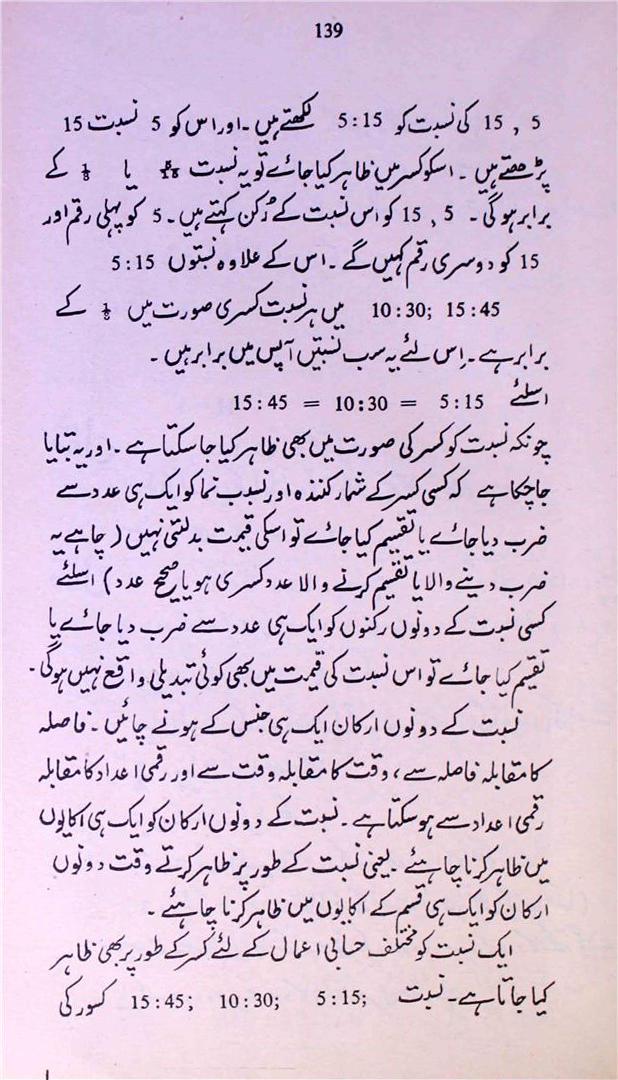 139
5 , 15 کی نسبت کو 5:15 لکھتے ہیں۔ اور اس کو 5 نسبت 15
پڑھتے ہیں ۔ اسکو کسر میں ظاہر کیا جائے تو یہ نسبت یا کے
برابر ہو گی ۔ 5 , 15 کو اس نسبت کے رُکن کہتے ہیں ۔ 5 کو پہلی رقم اور
15 کو دوسری رقم کہیں گے ۔ اس کے علاوہ نسبتوں 5:15
10:30; 15:45 میں ہر نسبت کسری صورت میں کے
برابر ہے ۔ اِس لئے یہ سب نسبتیں آپس میں برابر ہیں ۔
اسلئے 5:15 = 10:30 = 15:45
چونکہ نسبت کو کسر کی صورت میں بھی ظاہر کیا جا سکتا ہے ۔ اور یہ بتایا
جا چکا ہے کہ کسی کسر کے شمار کنندہ اور نسب نما کو ایک ہی عدد سے
ضرب دیا جائے یا تقسیم کیا جائے تو اسکی قیمت بدلتی نہیں ( چاہے یہ
ضرب دینے والا یا تقسیم کرنے والا عدد کسری ہو یا صحیح عدد ) اسلئے
کسی نسبت کے دونوں رکنوں کو ایک ہی عدد سے ضرب دیا جائے یا
تقسیم کیا جائے تو اس نسبت کی قیمت میں بھی کوئی تبدیلی واقع نہیں ہوگی ۔
نسبت کے دونوں ارکان ایک ہی جنس کے ہونے چائیں ۔ فاصلہ
کا مقابلہ فاصلہ سے ، وقت کا مقابلہ وقت سے اور رقمی اعداد کا مقابلہ
رقمی اعداد سے ہو سکتا ہے ۔ نسبت کے دونوں ارکان کو ایک ہی اکایوں
میں ظاہر کرنا چاہئے ۔ یعنی نسبت کے طور پر ظاہر کرتے وقت دونوں
ارکان کو ایک ہی قسم کے اکایوں میں ظاہر کرنا چاہئے ۔
ایک نسبت کو مختلف حسابی اعمال کے لئے کسر کے طور پر بھی ظاہر
کیا جاتا ہے ۔ نسبت 5:15; 10:30; 15:45; کسور کی